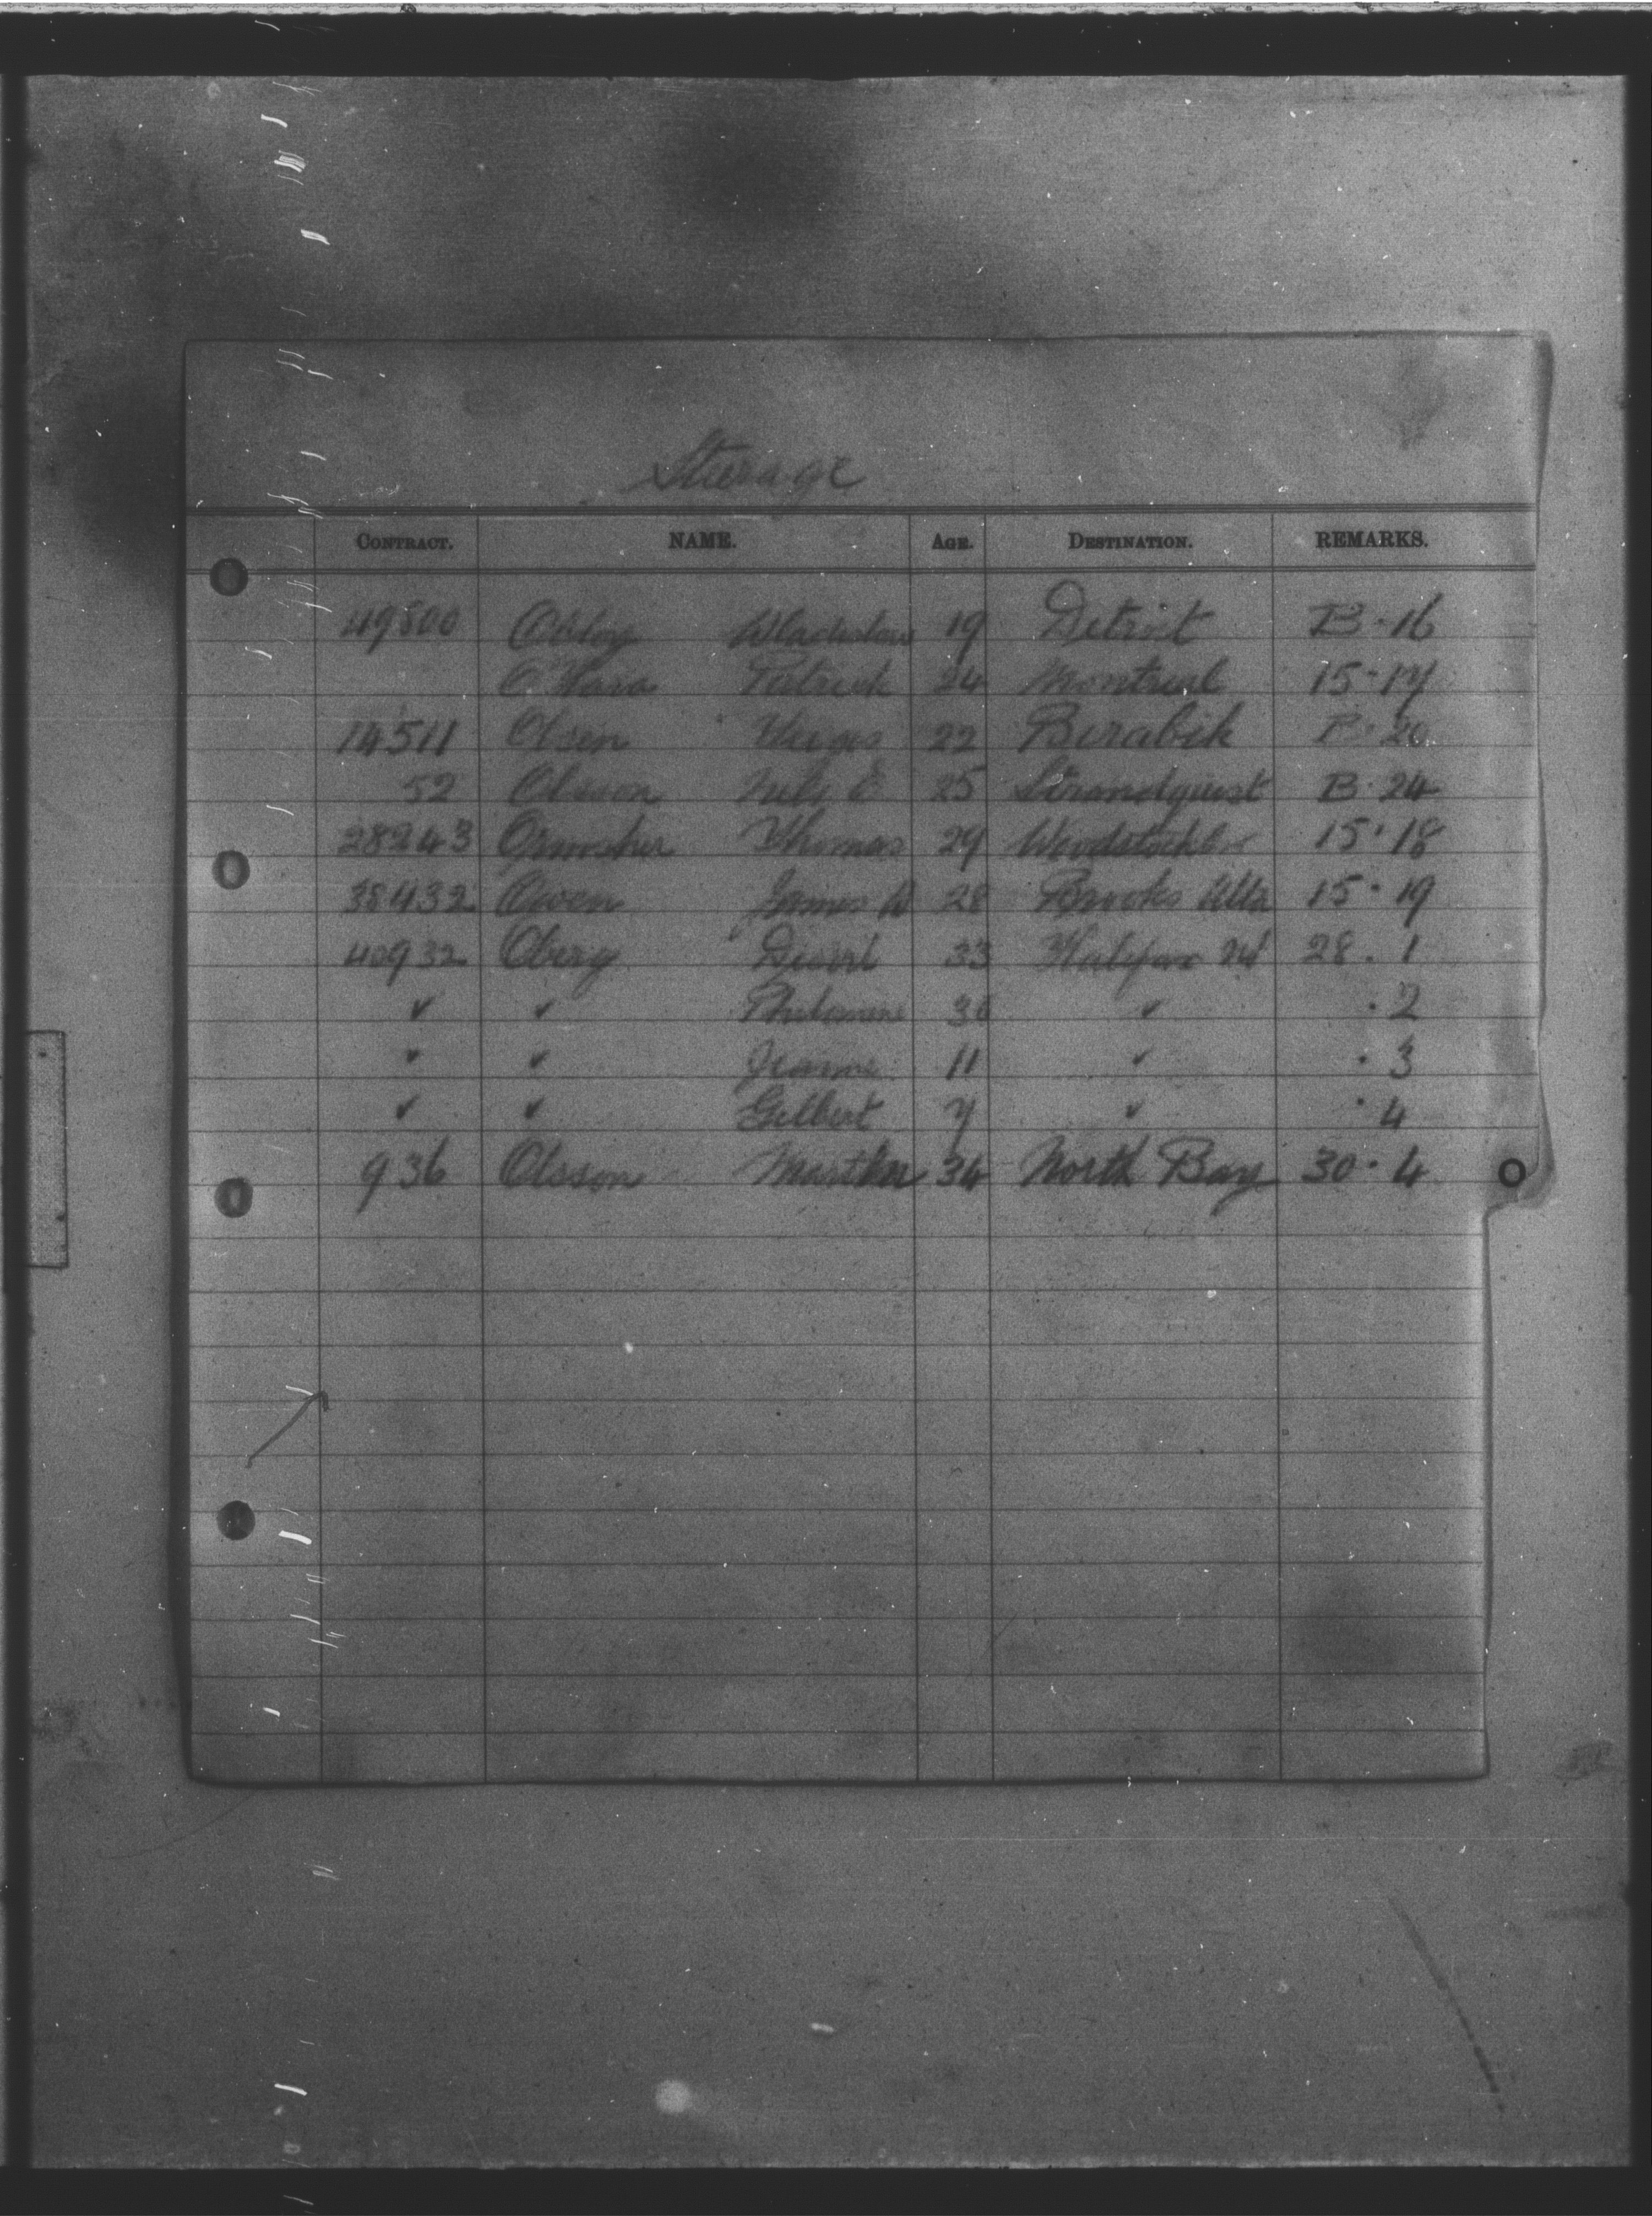 Steerage
CONTRACT. NAME. AGE. DESTINATION. REMARKS.
49800 19 Detroit B·16
O'Hara Patrick 24 Montreal 15·17
14511 Olsen 22 B·20
52 Olsson Nels E 25 Strandquist B·24
28243 Thomas 29 15·18
38432 Owen James 28 Brooks Alta 15·19
40932 Oberg 33 Halifax 28·1
✓ ✓ 36 ✓ ·2
✓ ✓ Jeanne 11 ✓ ·3
✓ ✓ Gilbert 7 ✓ ·4
936 Olsson Martha 34 North Bay 30·4